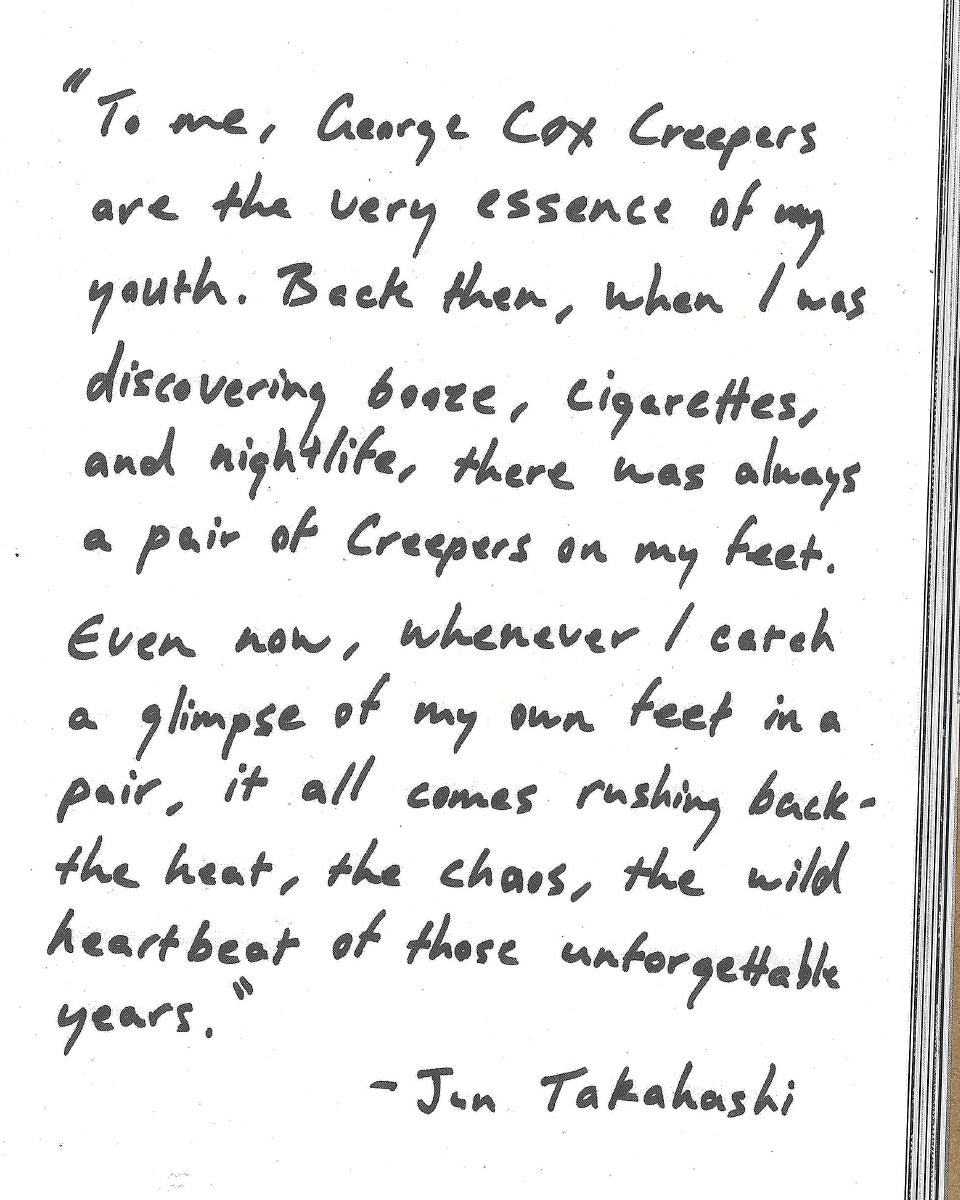 "To me, George Cox Creepers
are the very essence of my
youth. Back then, when I was
discovering booze, cigarettes,
and nightlife, there was always
a pair of Creepers on my feet.
Even now, whenever I catch
a glimpse of my own feet in a
pair, it all comes rushing back-
the heat, the chaos, the wild
heartbeat of those unforgettable
years."
- Jun Takahashi